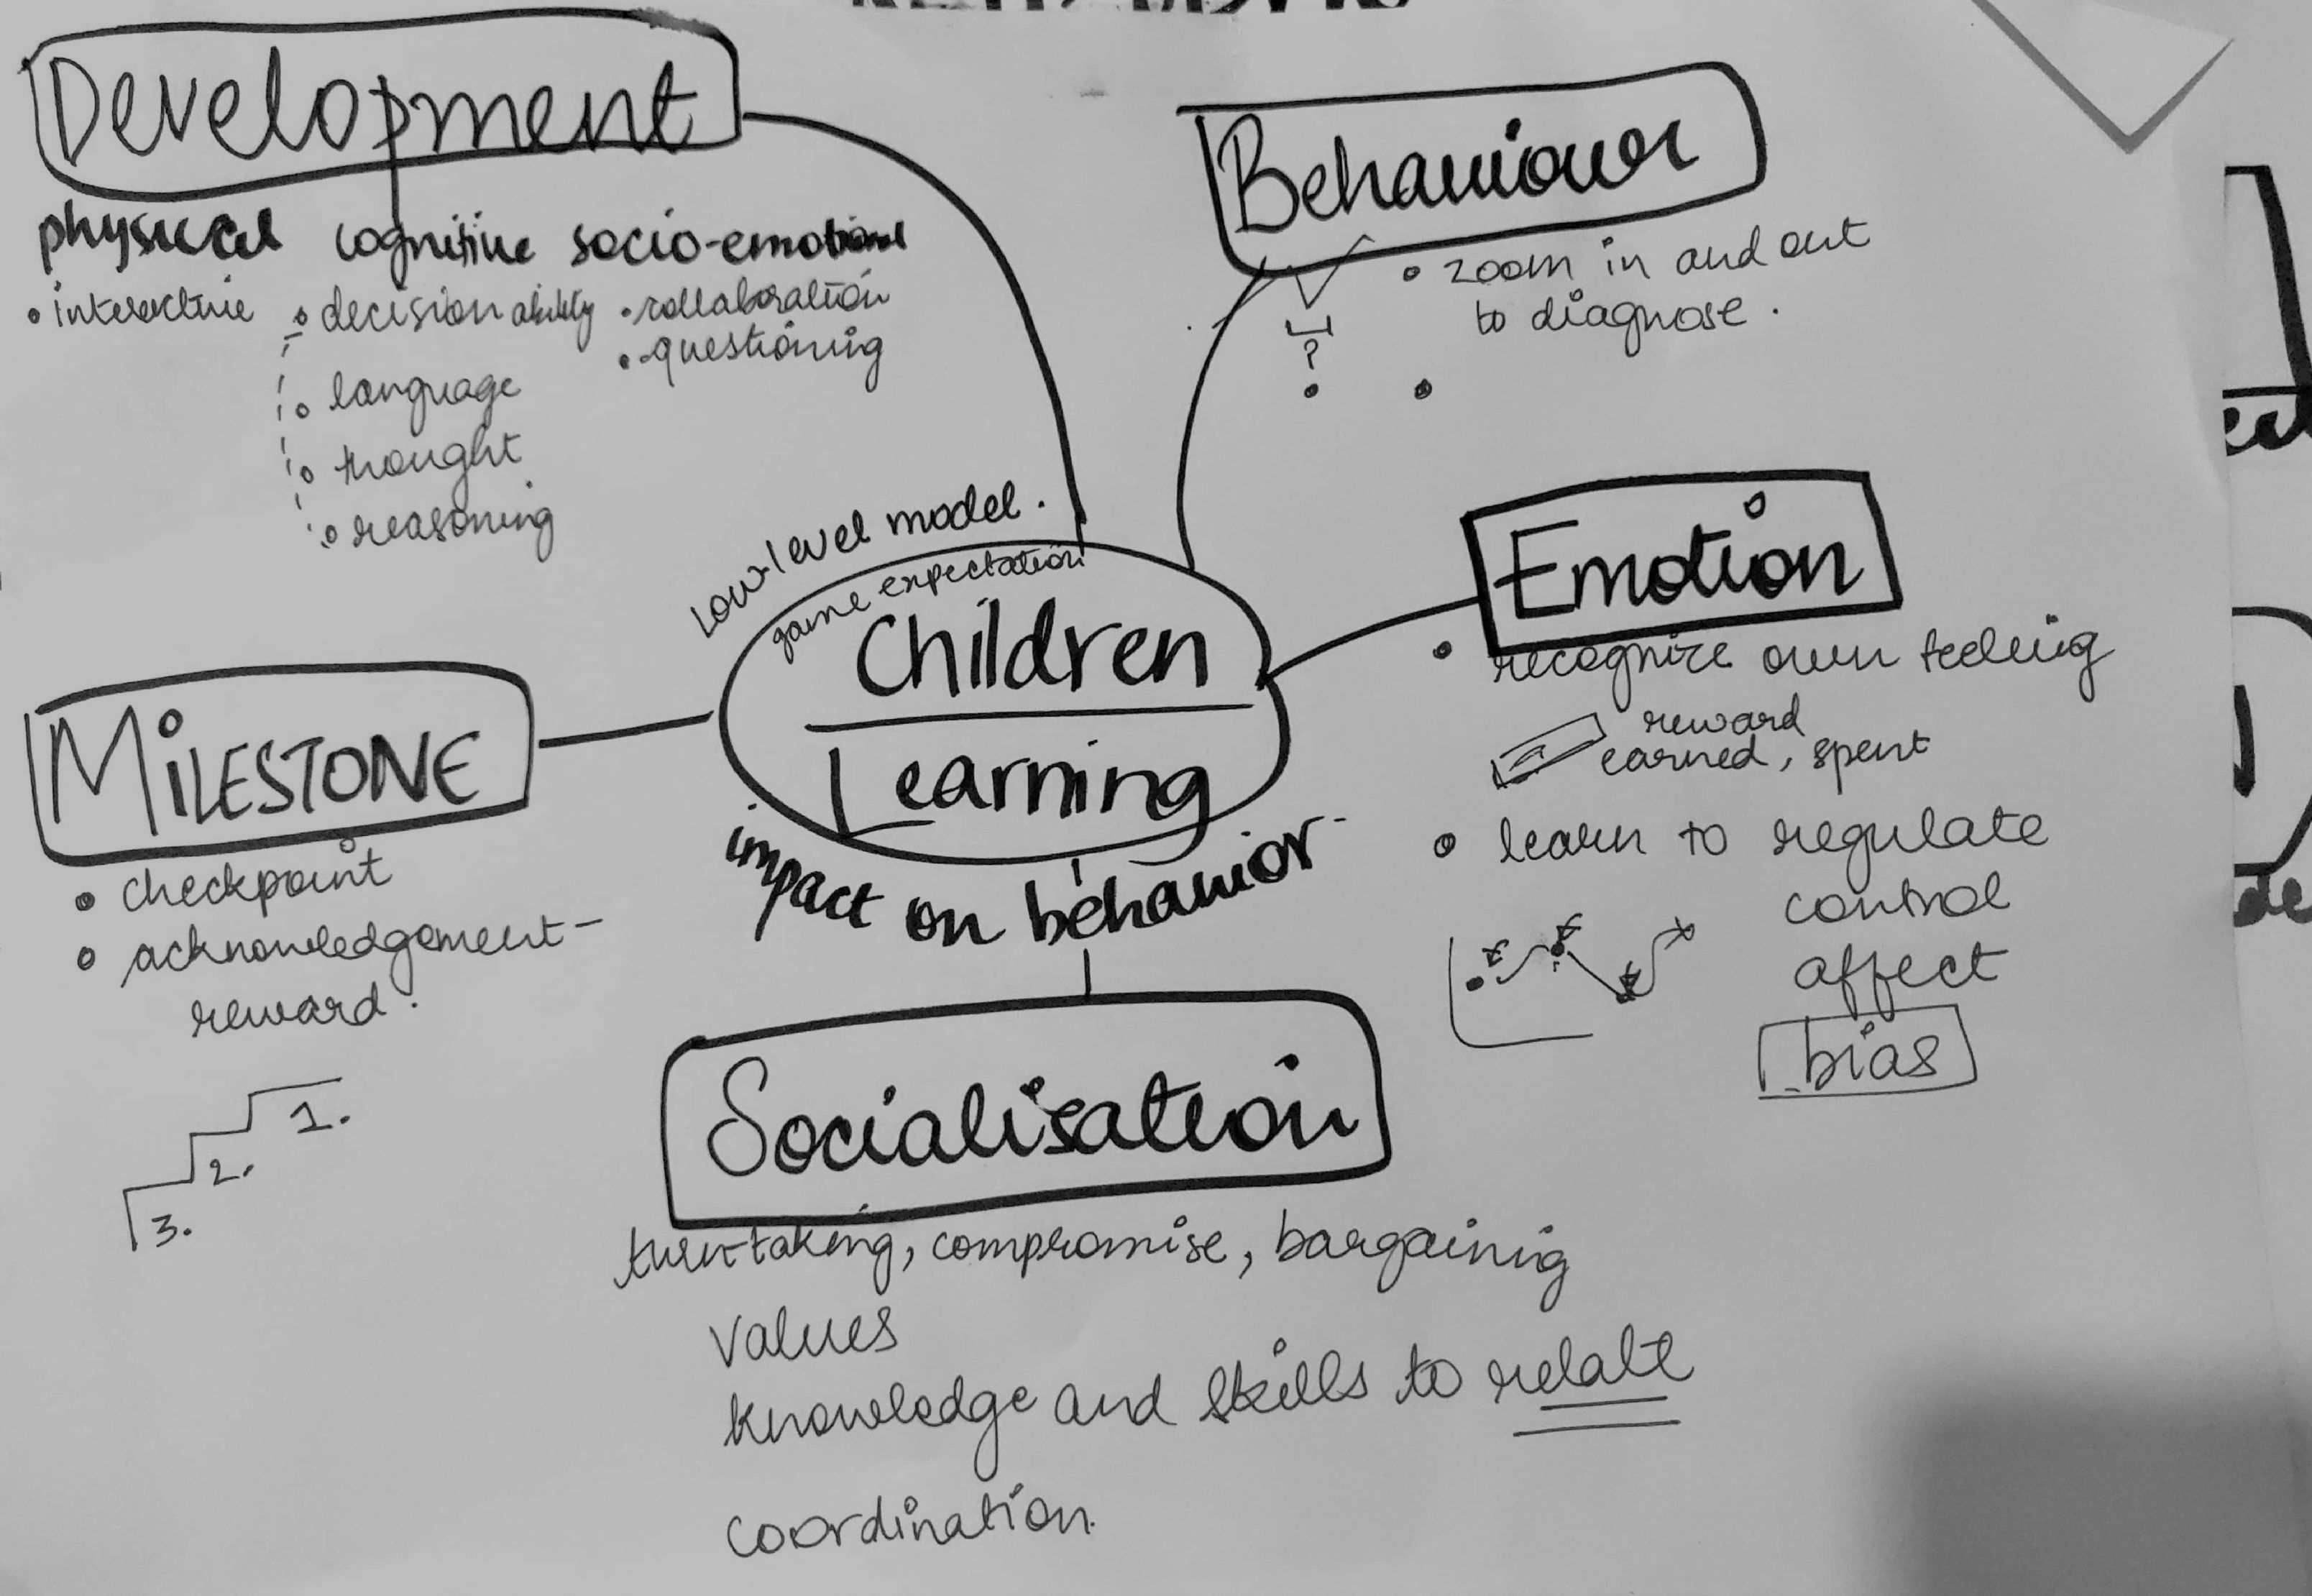 Development
physical cognitive socio-emotional
• interactive
• decision ability
• language
• thought
• reasoning
• collaboration
• questioning
Behaviour
• zoom in and out
to diagnose.
?
Low-level model.
game expectation
Children
Learning
impact on behavior
Emotion
• recognize own feeling
reward
earned, spent
• learn to regulate
control
affect
bias
MILESTONE
• checkpoint
• acknowledgement-
reward.
1.
2.
3.
Socialisation
turn-taking, compromise, bargaining
values
knowledge and skills to relate
coordination.